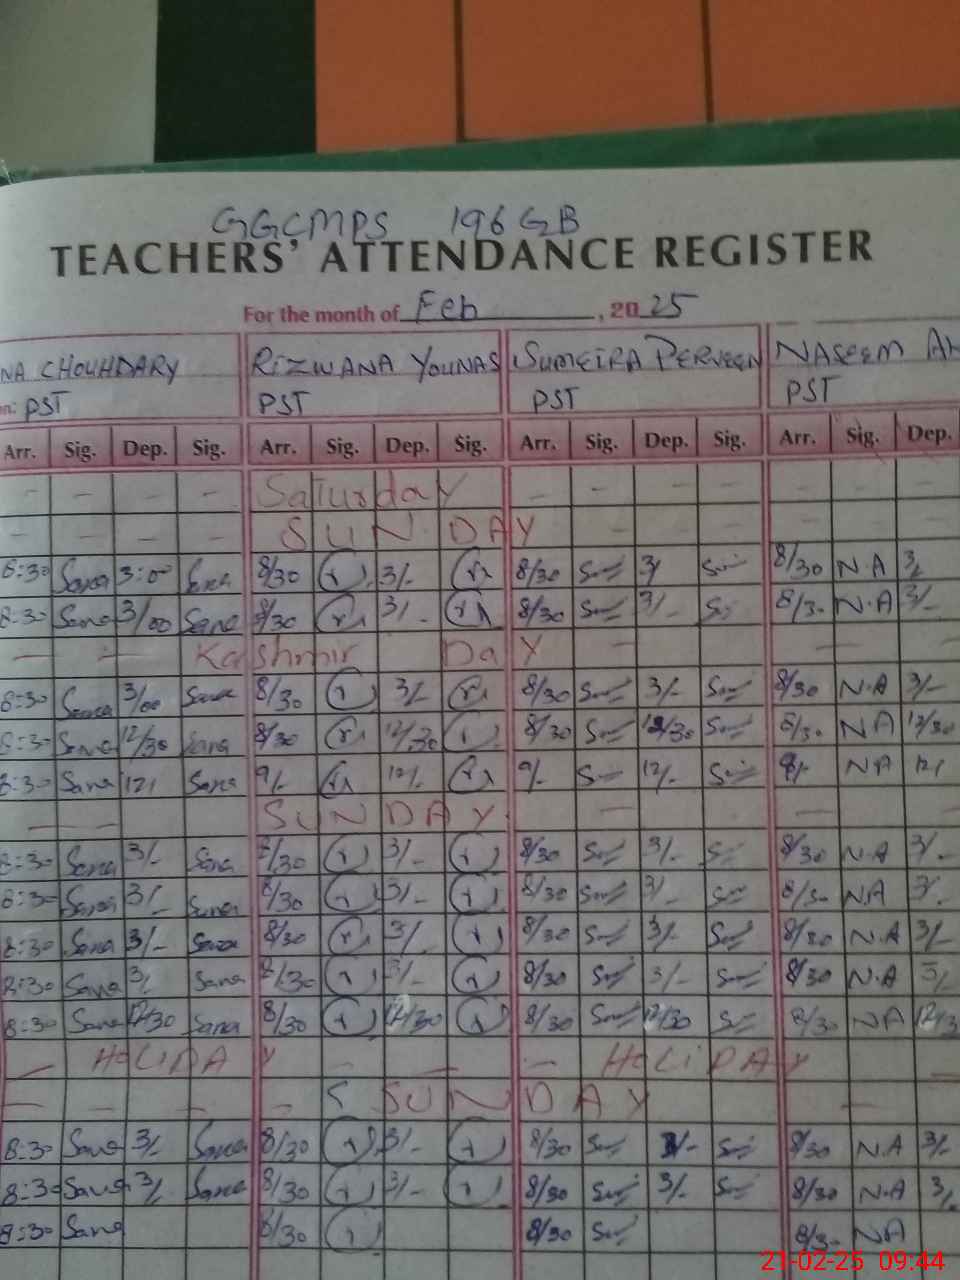 GGCMPS 196 GB
TEACHERS' ATTENDANCE REGISTER
For the month of Feb, 2025
NA CHOUHDARY RIZWANA YOUNAS SUMEIRA PERVEEN NASEEM AK
n: PST PST PST PST
Arr. Sig. Dep. Sig. Arr. Sig. Dep. Sig. Arr. Sig. Dep. Sig. Arr. Sig. Dep.
- - - - Saturday - - - - - - -
- - - - SUNDAY - - - - -
8:30 Sana 3:00 Sana 8/30 r 3/- r 8/30 3/ 8/30 N.A 3/
8:30 Sana 3/00 Sana 8/30 r 3/- r 8/30 3/- 8/30 N.A 3/-
- - Kashmir Day - - - -
8:30 Sana 3/00 Sana 8/30 r 3/- r 8/30 3/- 8/30 N.A 3/-
8:30 Sana 12/30 Sana 8/30 r 12/30 r 8/30 12/30 8/30 NA 12/30
8:30 Sana 12/ Sana 9/- r 12/- r 9/- 12/- 9/- NA 12/
- - SUNDAY - - - -
8:30 Sana 3/- Sana 8/30 r 3/- r 8/30 3/- 8/30 N.A 3/-
8:30 Sana 3/- Sana 8/30 r 3/- r 8/30 3/- 8/30 N.A 3/-
8:30 Sana 3/- Sana 8/30 r 3/- r 8/30 3/- 8/30 N.A 3/-
8:30 Sana 3/ Sana 8/30 r 3/- r 8/30 3/- 8/30 N.A 3/
8:30 Sana 12/30 Sana 8/30 r 12/30 r 8/30 12/30 8/30 NA 12/3
- HOLIDAY - - - HOLIDAY -
- - - - S SUNDAY -
8:30 Sana 3/- Sana 8/30 r 3/- r 8/30 3/- 8/30 N.A 3/-
8:30 Sana 3/- Sana 8/30 r 3/- r 8/30 3/- 8/30 N.A 3/-
8:30 Sana 8/30 r 8/30 8/30 NA
21-02-25 09:44